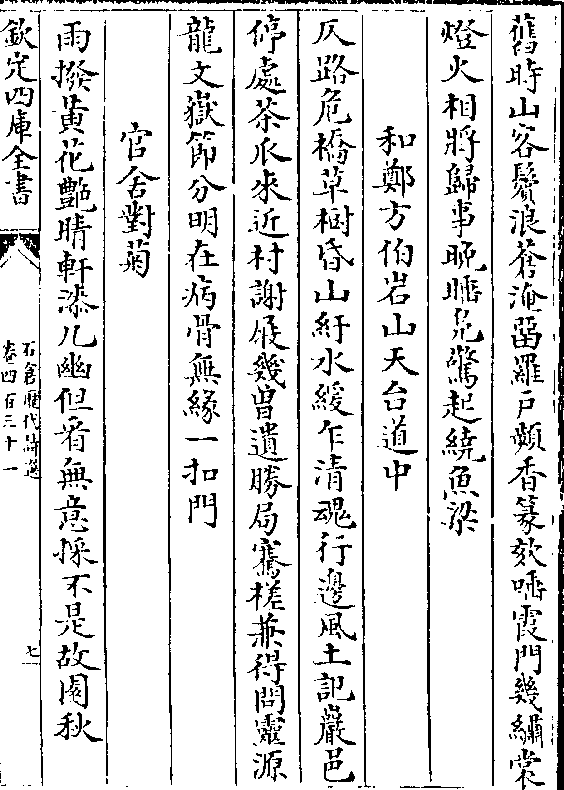 舊時山客鬢浪蒼淹留羅戸頗香篆欬唾霞門幾繡裳
燈火相將歸事晩睡凫驚起繞魚梁
和鄭方伯岩山天台道中
仄路危橋草樹昏山紆水緩乍清魂行邊風土記巖邑
停處茶瓜來近村謝屐幾曾遺勝局騫槎兼得問靈源
龍文嶽節分明在病骨無緣一扣門
官舍對菊
雨撥黄花艷晴軒漆几幽但看無意採不是故園秋
欽定四庫全書
石倉歴代詩選
卷四百三十一
七